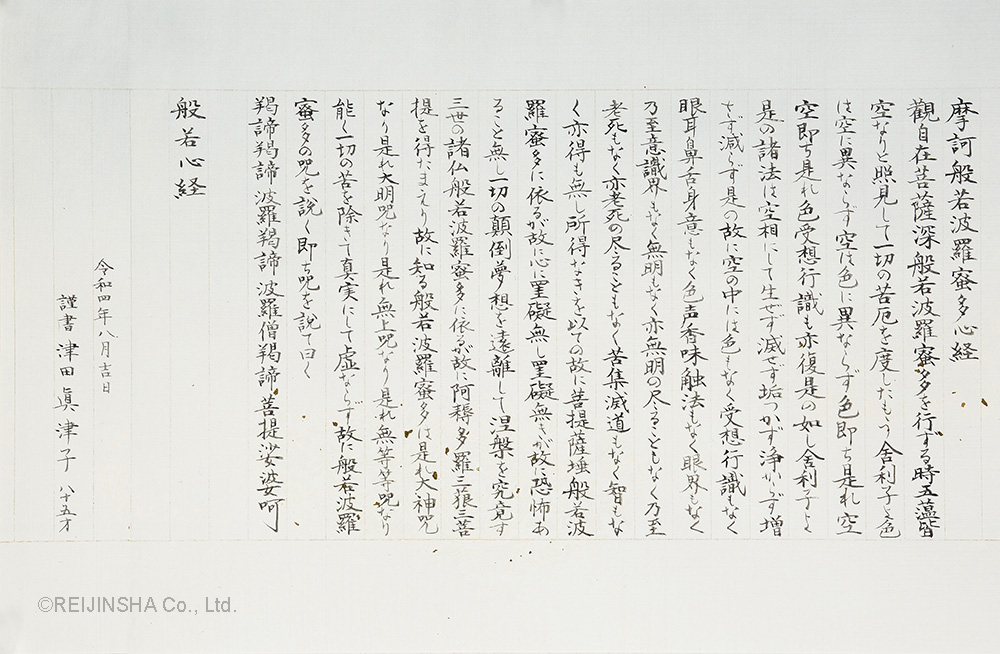 摩訶般若波羅蜜多心経
觀自在菩薩深般若波羅蜜多を行ずる時五蘊皆
空なりと照見して一切の苦厄を度したもう舍利子よ色
は空に異ならず空は色に異ならず色即ち是れ空
空即ち是れ色受想行識も亦復是の如し舍利子よ
是の諸法は空相にして生ぜず滅せず垢つかず浄からず増
さず減らず是の故に空の中には色もなく受想行識もなく
眼耳鼻舌身意もなく色声香味触法もなく眼界もなく
乃至意識界もなく無明もなく亦無明の尽ることもなく乃至
老死もなく亦老死の尽ることもなく苦集滅道もなく智もな
く亦得も無し所得なきを以ての故に菩提薩埵般若波
羅蜜多に依るが故に心に罣礙無し罣礙無きが故に恐怖あ
ること無し一切の顛倒夢想を遠離して涅槃を究竟す
三世の諸仏般若波羅蜜多に依るが故に阿耨多羅三藐三菩
提を得たまえり故に知る般若波羅蜜多は是れ大神呪
なり是れ大明呪なり是れ無上呪なり是れ無等等呪なり
能く一切の苦を除きて真実にして虚ならず故に般若波羅
蜜多の呪を説く即ち呪を説て曰く
羯諦羯諦波羅羯諦波羅僧羯諦菩提娑婆呵
般若心経
令和四年八月吉日
謹書 津田眞津子 八十五才
©REIJINSHA Co., Ltd.